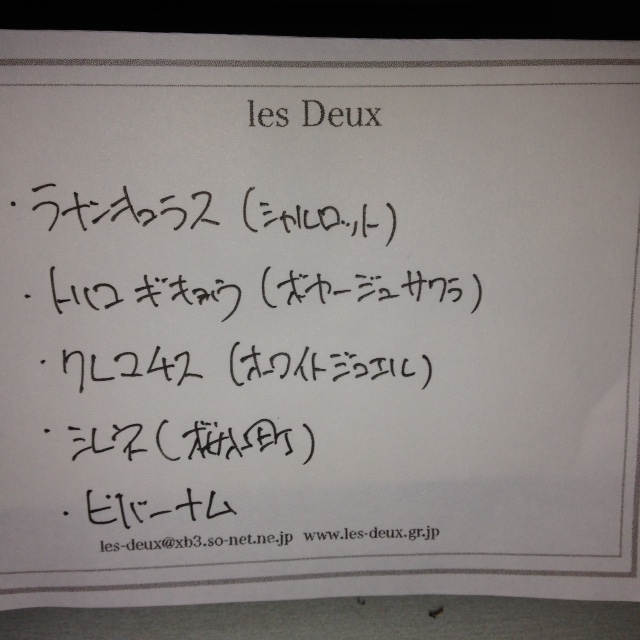 les Deux
・ラナンキュラス (シャルロット)
・トルコギキョウ (ボヤージュサクラ)
・クレマチス (ホワイトジュエル)
・シレネ (桜小町)
・ビバーナム
les-deux@xb3.so-net.ne.jp www.les-deux.gr.jp